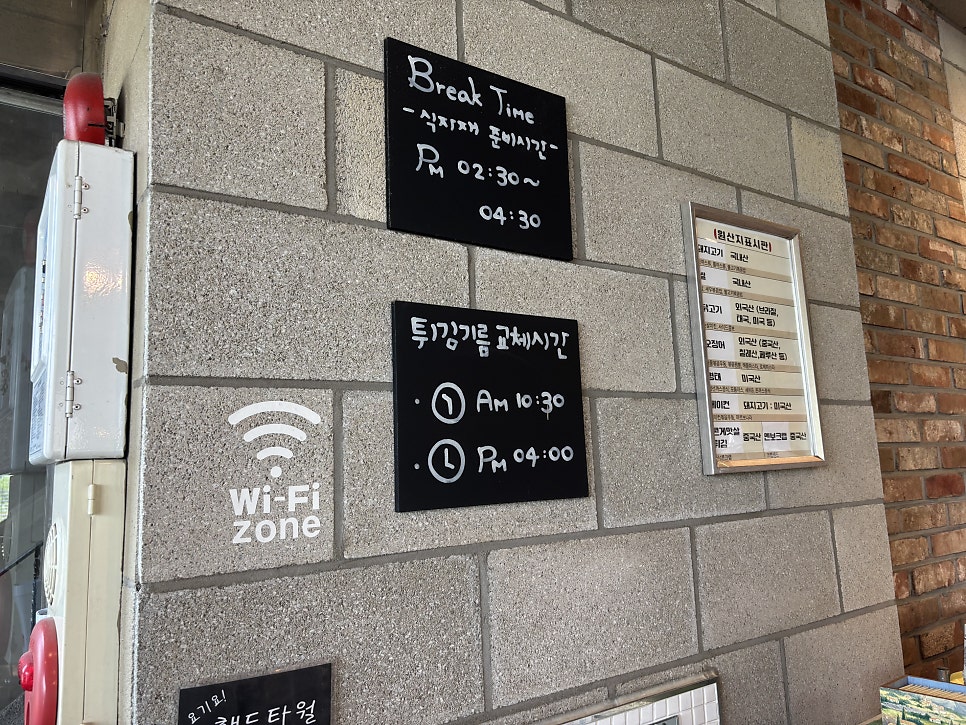 Break Time
- 식자재 준비시간 -
PM 02:30~
04:30
튀김기름 교체시간
· AM 10:30
· PM 04:00
Wi-Fi
zone
요기요!
핸드타월
(원산지표시판)
돼지고기 국내산
쌀 국내산
닭고기 외국산 (브라질,
태국, 미국 등)
오징어 외국산 (중국산,
칠레산,페루산 등)
미국산
베이컨 돼지고기 : 미국산
중국산 중국산